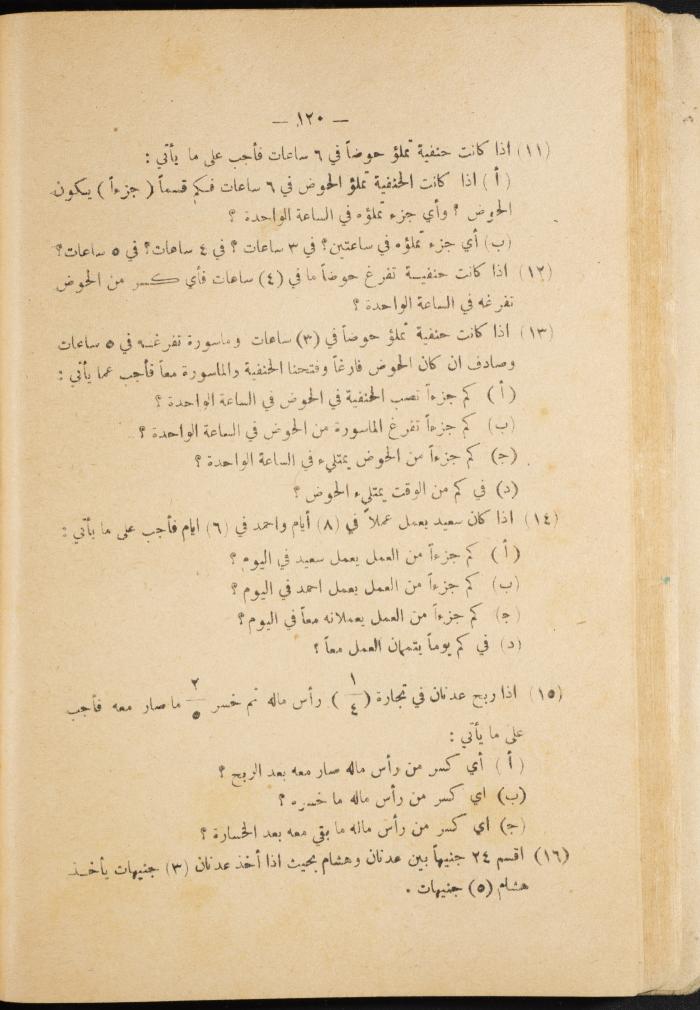 — ١٢٠ —
(١١) اذا كانت حنفية تملؤ حوضاً في ٦ ساعات فأجب على ما يأتي :
(أ) اذا كانت الحنفية تملؤ الحوض في ٦ ساعات فكم قسماً (جزءاً) يكون
الحوض ؟ وأي جزء تملؤه في الساعة الواحدة ؟
(ب) أي جزء تملؤه في ساعتين؟ في ٣ ساعات ؟ في ٤ ساعات؟ في ٥ ساعات؟
(١٢) اذا كانت حنفيسة تفرغ حوضاً ما في (٤) ساعات فأي كسر من الحوض
تفرغه في الساعة الواحدة ؟
(١٣) اذا كانت حنفية تملؤ حوضاً في (٣) ساعات وماسورة تفرغه في ٥ ساعات
وصادف ان كان الحوض فارغاً وفتحنا الحنفية والماسورة معاً فأجب عما يأتي :
(أ) كم جزءاً تصب الحنفية في الحوض في الساعة الواحدة ؟
(ب) كم جزءاً تفرغ الماسورة من الحوض في الساعة الواحدة ؟
(ج) كم جزءاً من الحوض يمتليء في الساعة الواحدة ؟
(د) في كم من الوقت يمتليء الحوض ؟
(١٤) اذا كان سعيد يعمل عملاً في (٨) أيام واحمد في (٦) ايام فأجب على ما يأتي :
(أ) كم جزءاً من العمل يعمل سعيد في اليوم ؟
(ب) كم جزءاً من العمل يعمل احمد في اليوم ؟
(ج) كم جزءاً من العمل يعملانه معاً في اليوم ؟
(د) في كم يوماً يتمان العمل معاً ؟
(١٥) اذا ربح عدنان في تجارة (١/٤) رأس ماله ثم خسر ٢/٥ ما صار معه فأجب
على ما يأتي :
(أ) أي كسر من رأس ماله صار معه بعد الربح ؟
(ب) اي كسر من رأس ماله ما خسره ؟
(ج) اي كسر من رأس ماله ما بقي معه بعد الخسارة ؟
(١٦) اقسم ٢٤ جنيهاً بين عدنان وهشام بحيث اذا أخذ عدنان (٣) جنيهات يأخذ
هشام (٥) جنيهات .